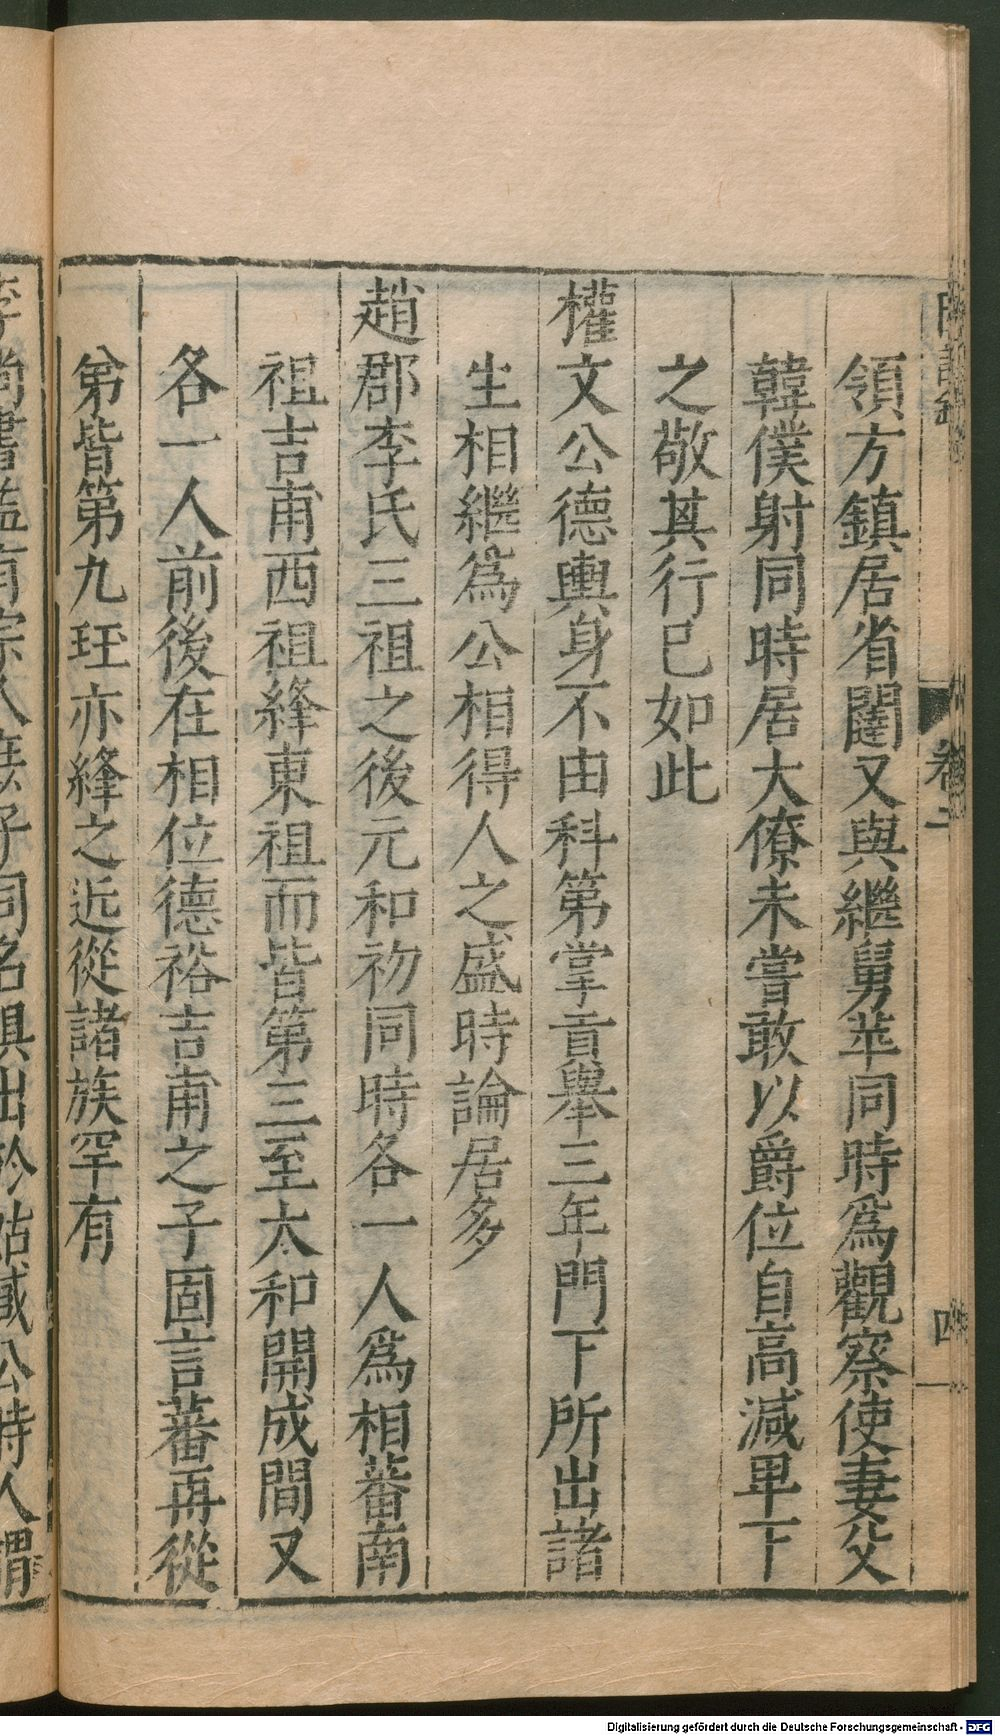 領方鎮居省闥又與繼舅苹同時爲觀察使妻父
韓僕射同時居大僚未嘗敢以爵位自高減卑下
之敬其行已如此
權文公德輿身不由科第掌貢舉三年門下所出諸
生相繼爲公相得人之盛時論居多
趙郡李氏三祖之後元和初同時各一人爲相蕃南
祖吉甫西祖絳東祖而皆第三至太和開成間又
各一人前後在相位德裕吉甫之子固言蕃再從
弟皆第九珏亦絳之近從諸族罕有
李尚書益有宗人庶子同名俱出於姑臧公時人謂
卷二
四
Digitalisierung gefördert durch die Deutsche Forschungsgemeinschaft - DFG